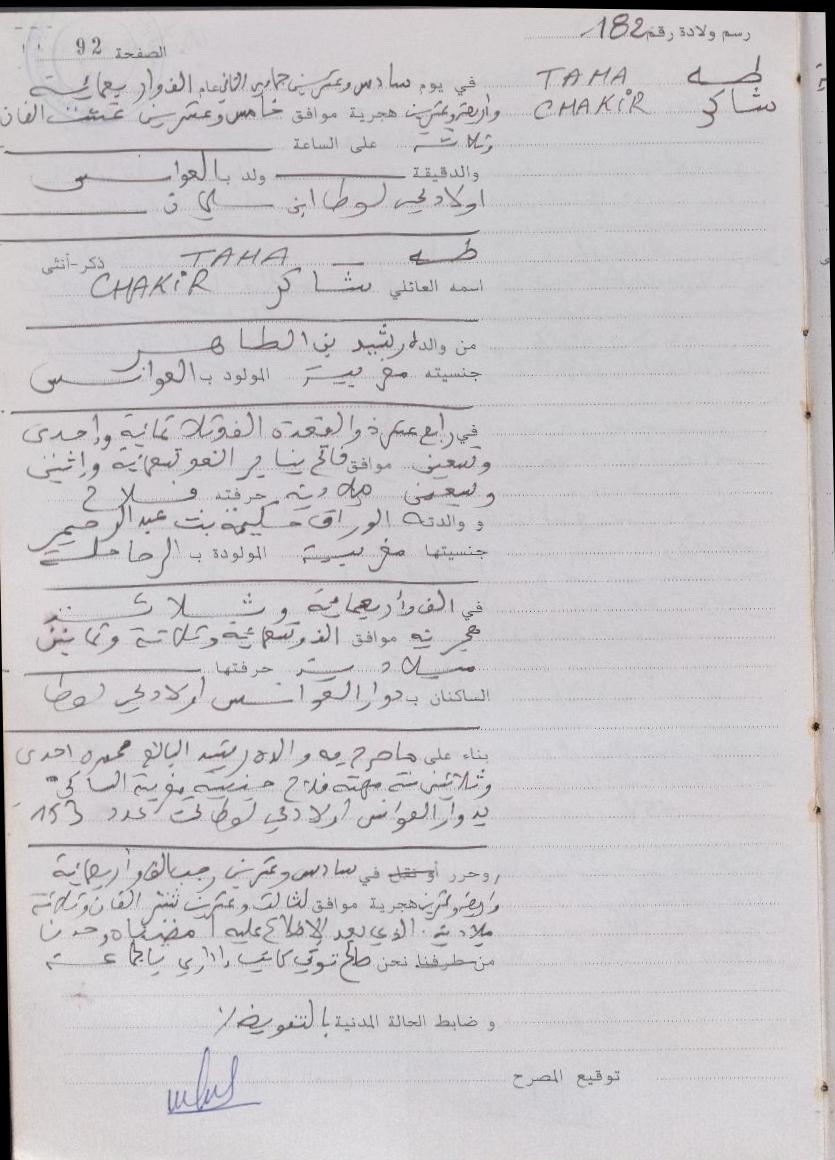 رسم ولادة رقم 182
الصفحة 92
طه TAHA
شاكر CHAKIR
في يوم سادس وعشرين جمادى الثاني عام الف واربعمائة
واربعة وعشرين هجرية موافق خامس وعشرين غشت الفان
وثلاثة على الساعة
والدقيقة ولد ب العوانس
اولاد يحي لوطا ابن
طه TAHA ذكر-أنثى
اسمه العائلي شاكر CHAKIR
من والده رشيد بن الطاهر
جنسيته مغربية المولود ب العوانس
في رابع عشر ذو القعدة الف وثلاثمائة وإحدى
وتسعين موافق فاتح يناير الف وتسعمائة واثنين
وسبعين ميلادية حرفته فلاح
و والدته الوراق حكيمة بنت عبد الرحيم
جنسيتها مغربية المولودة ب
في الف وأربعمائة وثلاثة
هجرية موافق الف وتسعمائة وثلاثة وثمانين
ميلادية حرفتها
الساكنان ب دوار العوانس اولاد يحي لوطا
بناء على ما صرح به والده رشيد البالغ عمره احدى
وثلاثين سنة مهنته فلاح جنسيته مغربية الساكن
بدوار العوانس اولاد يحي لوطا تحت عدد 153
وحرر أو نقل في سادس وعشرين رجب الف وأربعمائة
واربعة وعشرين هجرية موافق لثالث وعشرين شتنبر الفان وثلاثة
ميلادية. الذي بعد الإطلاع عليه أمضيناه وحدنا
من طرفنا نحن صالح كاتب إداري بالجماعة
و ضابط الحالة المدنية بالتفويض /.
توقيع المصرح